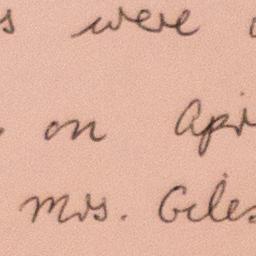 s were
on Apr
Mrs. Giles